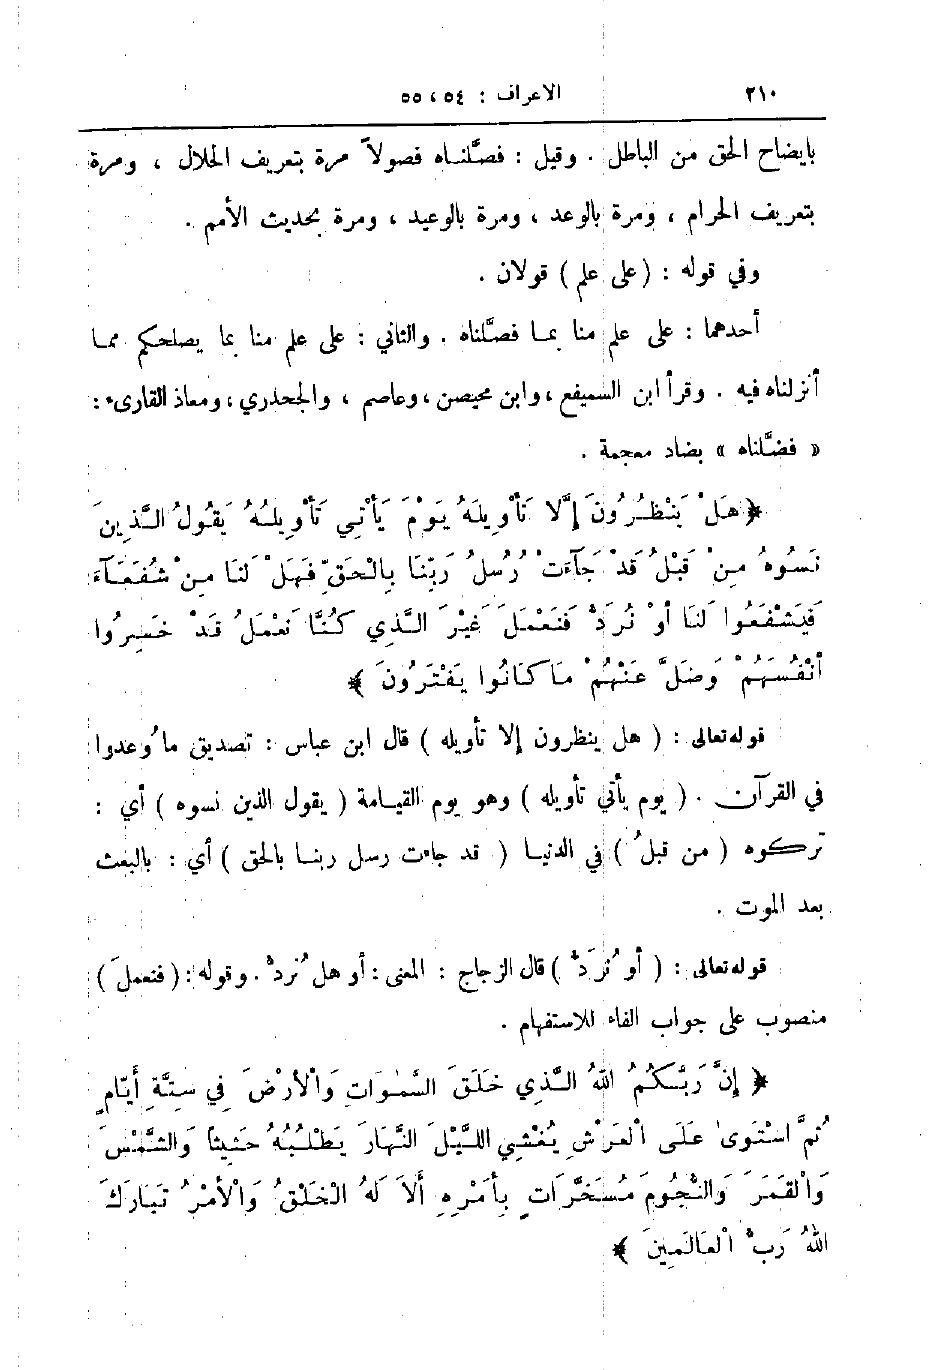 ٢١٠ الاعراف : ٥٤ ، ٥٥
بايضاح الحق من الباطل . وقيل : فصَّلناه فصولاً مرة بتعريف الحلال ، ومرة
بتعريف الحرام ، ومرة بالوعد ، ومرة بالوعيد ، ومرة بحديث الأمم .
وفي قوله : ( على علم ) قولان .
أحدهما : على علم منا بما فصَّلناه . والثاني : على علم منا بما يصلحكم مما
أنزلناه فيه . وقرأ ابن السميفع ، وابن محيصن ، وعاصم ، والجحدري ، ومعاذ القارىء :
« فضَّلناه » بضاد معجمة .
﴿ هَلْ يَنْظُرُونَ إِلَّا تَأْوِيلَهُ يَوْمَ يَأْتِي تَأْوِيلُهُ يَقُولُ الَّذِينَ
نَسُوهُ مِنْ قَبْلُ قَدْ جَآءَتْ رُسُلُ رَبِّنَا بِالْحَقِّ فَهَلْ لَنَا مِنْ شُفَعَآءَ
فَيَشْفَعُوا لَنَا أَوْ نُرَدُّ فَنَعْمَلَ غَيْرَ الَّذِي كُنَّا نَعْمَلُ قَدْ خَسِرُوا
أَنْفُسَهُمْ وَضَلَّ عَنْهُمْ مَا كَانُوا يَفْتَرُونَ ﴾
قوله تعالى : ( هل ينظرون إلا تأويله ) قال ابن عباس : تصديق ما وُعدوا
في القرآن . ( يوم يأتي تأويله ) وهو يوم القيامة ( يقول الذين نسوه ) أي :
تركوه ( من قبلُ ) في الدنيا ( قد جاءت رسل ربنا بالحق ) أي : بالبعث
بعد الموت .
قوله تعالى : ( أو نُرَدُّ ) قال الزجاج : المعنى : أو هل نُردُّ . وقوله : ( فنعملَ )
منصوب على جواب الفاء للاستفهام .
﴿ إِنَّ رَبَّكُمُ اللهُ الَّذِي خَلَقَ السَّمٰوَاتِ وَالْأَرْضَ فِي سِتَّةِ أَيَّامٍ
ثُمَّ اسْتَوَىٰ عَلَى الْعَرْشِ يُغْشِي اللَّيْلَ النَّهَارَ يَطْلُبُهُ حَثِيثاً وَالشَّمْسَ
وَالْقَمَرَ وَالنُّجُومَ مُسَخَّرَاتٍ بِأَمْرِهِ أَلَا لَهُ الْخَلْقُ وَالْأَمْرُ تَبَارَكَ
اللهُ رَبُّ الْعَالَمِينَ ﴾